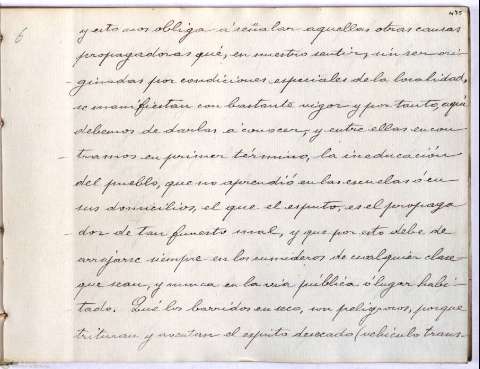 435
6
y esto nos obliga á señalar aquellas otras causas
propagadoras qué, en nuestro sentir, sin ser ori-
ginadas por condiciones especiales de la localidad,
se manifiestan con bastante vigor y por tanto, aquí
debemos de darlas á conocer, y entre ellas encon-
tramos en primer término, la ineducación
del pueblo, que no aprendió en las escuelas ó en
sus domicilios, el que el esputo, es el propaga
dor de tan funesto mal, y que por esto debe de
arrojarse siempre en los sumideros de cualquier clase
que sean, y nunca en la via pública ó lugar habi-
tado. Qué los barridos en seco, son peligrosos, porque
trituran y avientan el esputo desecado (vehículo trans-